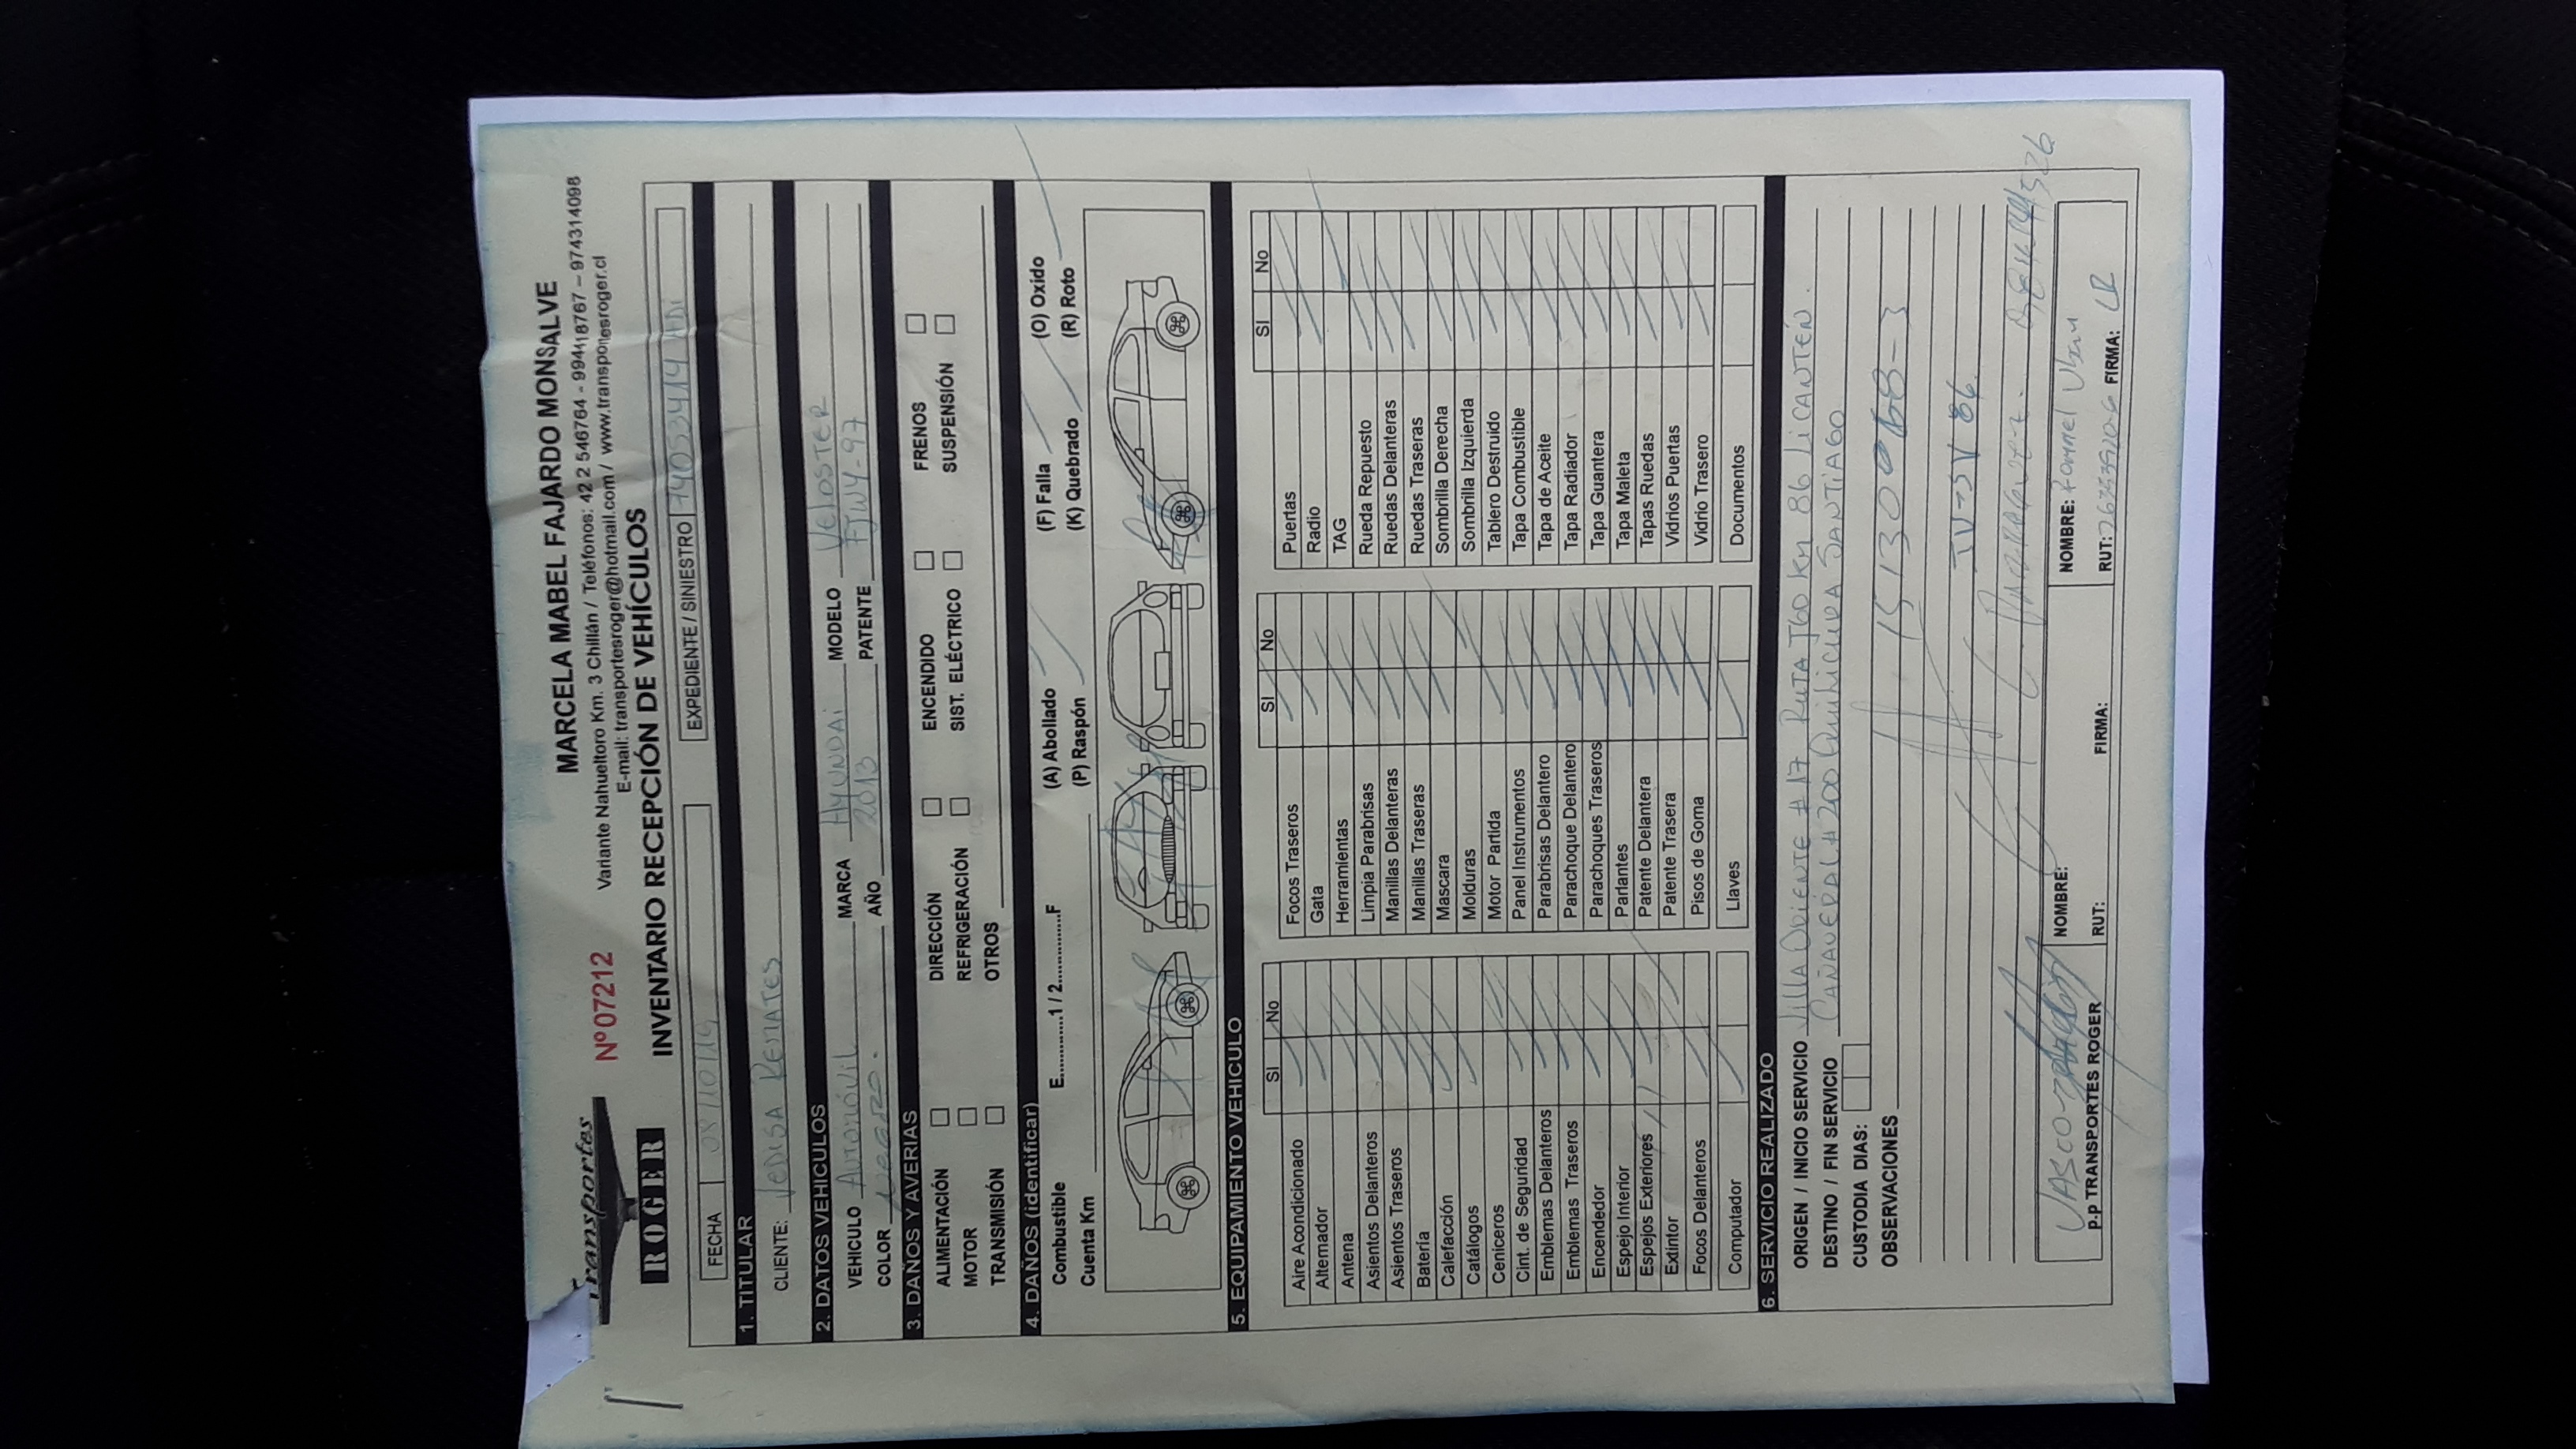 Transportes
ROGER
Nº 07212
MARCELA MABEL FAJARDO MONSALVE
Variante Nahueltoro Km. 3 Chillán / Teléfonos: 42 2 546764 - 994418767 – 974314098
E-mail: transportesroger@hotmail.com / www.transportesroger.cl
INVENTARIO RECEPCIÓN DE VEHÍCULOS
FECHA 08/10/19 EXPEDIENTE / SINIESTRO
1. TITULAR
CLIENTE: VEDISA REMATES
2. DATOS VEHICULOS
VEHICULO AUTOMÓVIL MARCA HYUNDAI MODELO VELOSTER
COLOR NEGRO. AÑO 2013 PATENTE FJWY-97
3. DAÑOS Y AVERIAS
ALIMENTACIÓN DIRECCIÓN ENCENDIDO FRENOS
MOTOR REFRIGERACIÓN SIST. ELÉCTRICO SUSPENSIÓN
TRANSMISIÓN OTROS
4. DAÑOS (identificar)
Combustible E..............1 / 2..............F (A) Abollado (F) Falla (O) Oxido
Cuenta Km (P) Raspón (K) Quebrado (R) Roto
5. EQUIPAMIENTO VEHICULO
SI No SI No SI No
Aire Acondicionado Focos Traseros Puertas
Alternador Gata Radio
Antena Herramientas TAG
Asientos Delanteros Limpia Parabrisas Rueda Repuesto
Asientos Traseros Manillas Delanteras Ruedas Delanteras
Batería Manillas Traseras Ruedas Traseras
Calefacción Mascara Sombrilla Derecha
Catálogos Molduras Sombrilla Izquierda
Ceniceros Motor Partida Tablero Destruido
Cint. de Seguridad Panel Instrumentos Tapa Combustible
Emblemas Delanteros Parabrisas Delantero Tapa de Aceite
Emblemas Traseros Parachoque Delantero Tapa Radiador
Encendedor Parachoques Traseros Tapa Guantera
Espejo Interior Parlantes Tapa Maleta
Espejos Exteriores Patente Delantera Tapas Ruedas
Extintor Patente Trasera Vidrios Puertas
Focos Delanteros Pisos de Goma Vidrio Trasero
Computador Llaves Documentos
6. SERVICIO REALIZADO
ORIGEN / INICIO SERVICIO VILLA ORIENTE #17 RUTA J60 Km 86 LICANTÉN.
DESTINO / FIN SERVICIO CAÑAVERAL #200 QUILICURA SANTIAGO
CUSTODIA DIAS:
OBSERVACIONES
NOMBRE: NOMBRE: Rommel
P.P TRANSPORTES ROGER RUT: FIRMA: RUT: FIRMA: